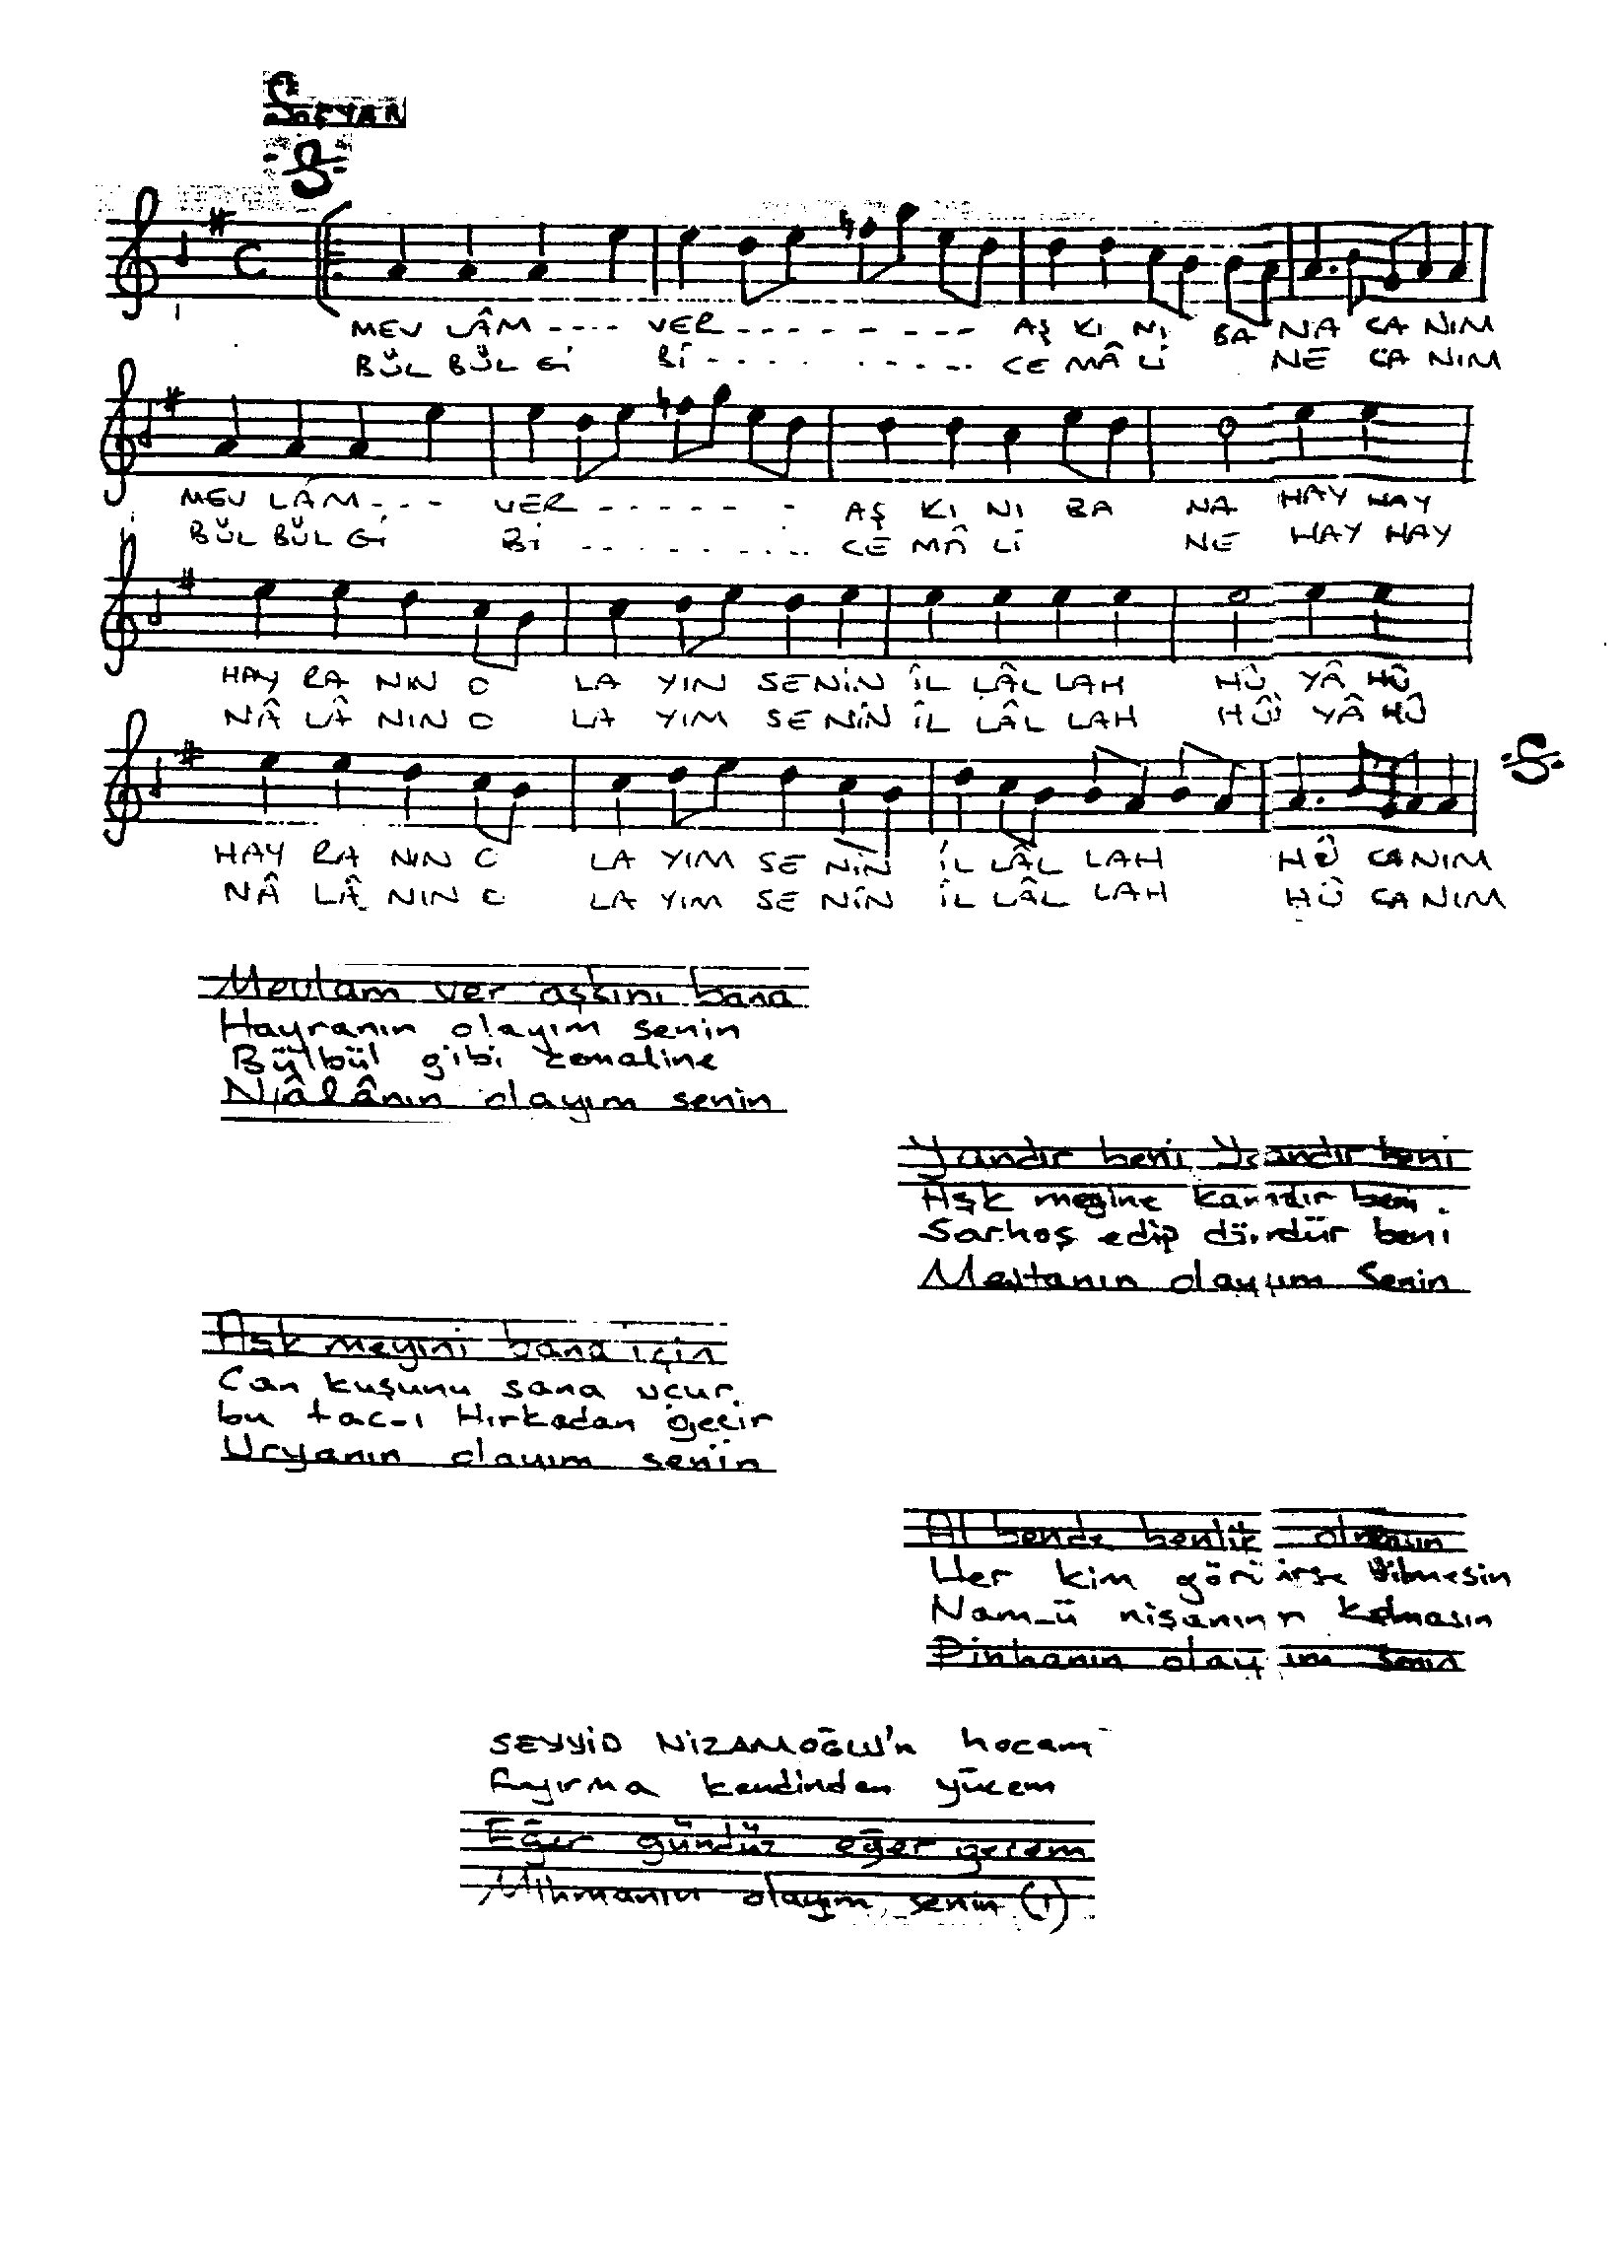 SOFYAN
MEV LÂM ---- VER --------- AŞ KI NI BA NA CA NIM
BÜL BÜL Gİ Bİ --------- CE MÂ Lİ NE CA NIM
MEV LÂM --- VER ------ AŞ KI NI BA NA HAY HAY
BÜL BÜL Gİ Bİ ---------- CE MÂ Lİ NE HAY HAY
HAY RA NIN O LA YIM SENİN İL LÂL LAH HÛ YÂ HÛ
NÂ LÂ NIN O LA YIM SE NİN İL LÂL LAH HÛ YÂ HÛ
HAY RA NIN O LA YIM SE NİN İL LÂL LAH HÛ CANIM
NÂ LÂ NIN O LA YIM SE NİN İL LÂL LAH HÛ CANIM
Mevlam ver aşkını bana
Hayranın olayım senin
Bülbül gibi cemaline
Nâlânın olayım senin
Yandır beni Yandır beni
Aşk meyine kandır beni
Sarhoş edip döndür beni
Mestanın olayım senin
Aşk meyini bana için
Can kuşunu sana uçur
bu tac-ı Hırkadan geçir
Uryanın olayım senin
Al bende benlik olmasın
Her kim görürse bilmesin
Nam-ü nişanım kalmasın
Pinhanın olayım senin
SEYYİD NİZAMOĞLU'n hocam
Ayırma kendinden yücem
Eğer gündüz eğer gecem
Mihmanın olayım senin (1)